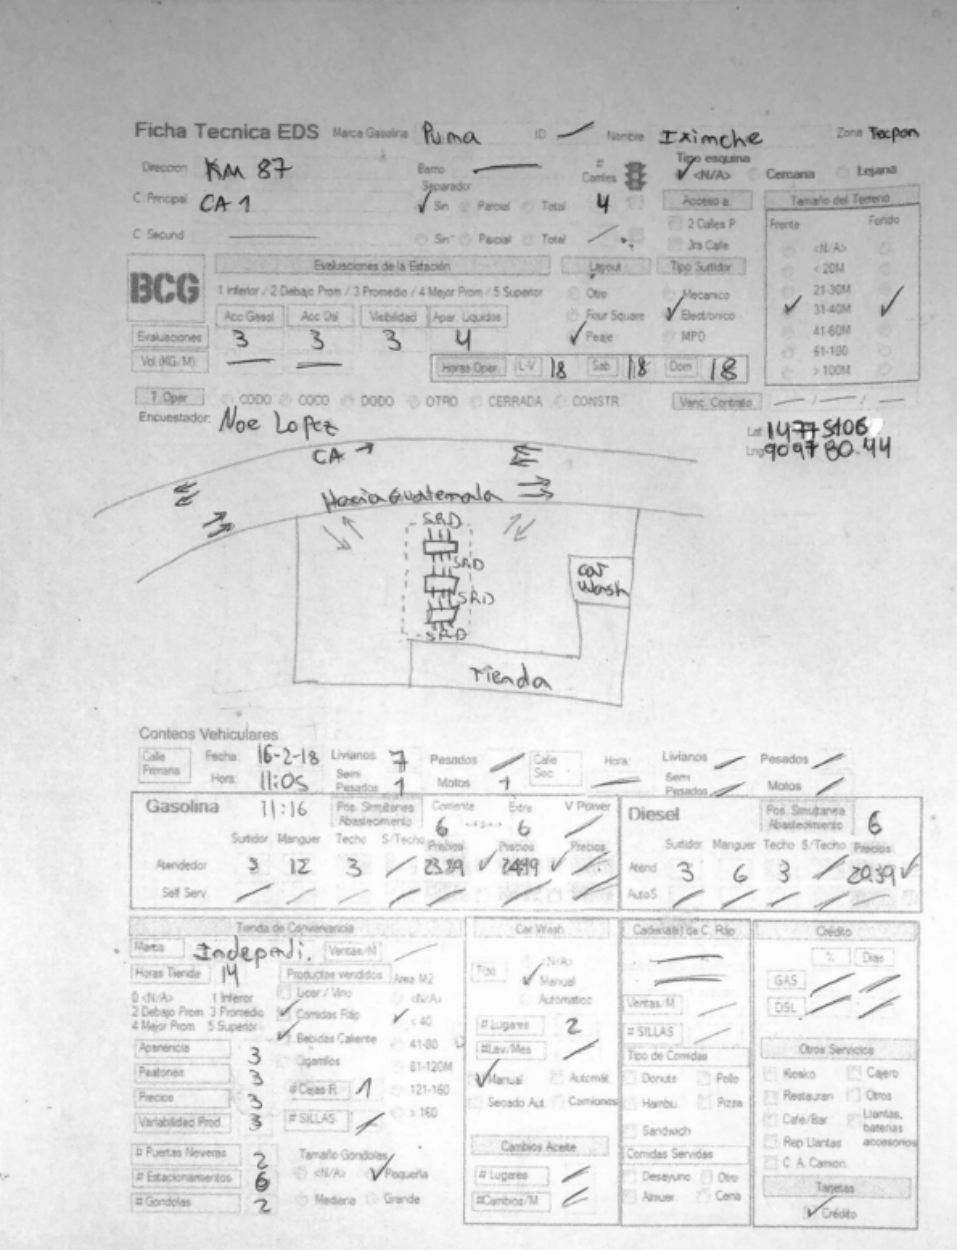 Ficha Tecnica EDS Marca Gasolina Puma ID Nombre Iximche Zona Tecpan
Direccion KM 87 Barrio # Carriles Tipo esquina <N/A> Cercana Lejana
C. Principal CA 1 Separador Sin Parcial Total 4 Acceso a Tamaño del Terreno
C. Secund Sin Parcial Total 2 Calles P Frente Fondo
3ra Calle <N/A>
BCG Evaluaciones de la Estación Layout Tipo Surtidor < 20M
1 Inferior / 2 Debajo Prom / 3 Promedio / 4 Mejor Prom / 5 Superior Otro Mecanico 21-30M
Acc Gasol Acc Dsl Visibilidad Apar. Liquidos Four Square Electronico 31-40M
Evaluaciones 3 3 3 4 Peaje MPD 41-60M
Vol (KG/M) Horas Oper. L-V 18 Sab 18 Dom 18 61-100
> 100M
T. Oper CODO COCO DODO OTRO CERRADA CONSTR. Venc. Contrato
Encuestador: Noe Lopez
Lat
Lng
CA
Hacia Guatemala
SRD
SRD
SRD
SRD
Car Wash
Tienda
Conteos Vehiculares
Calle Primaria Fecha: 16-2-18 Livianos 7 Pesados Calle Sec Hora: Livianos Pesados
Hora: 11:05 Semi Pesados 1 Motos 1 Semi Pesados Motos
Gasolina 11:16 Pos. Simultanea Abastecimiento Corriente 6 Extra 6 V Power Diesel Pos. Simultanea Abastecimiento 6
Surtidor Manguer Techo S/Techo Precios Precios Precios Surtidor Manguer Techo S/Techo Precios
Atendedor 3 12 3 23.39 24.99 Atend 3 6 3 20.39
Self Serv. AutoS
Tienda de Conveniencia Car Wash Cadena(s) de C. Ráp Crédito
Marca Independi. Ventas/M <N/A> % Dias
Horas Tienda 14 Productos vendidos Area M2 Tipo Manual GAS
0 <N/A> 1 Inferior Licor / Vino <N/A> Automatico Ventas/M DSL
2 Debajo Prom 3 Promedio Comidas Ráp < 40 # Lugares 2 # SILLAS
4 Mejor Prom 5 Superior Bebidas Caliente 41-80 #Lav./Mes Tipo de Comidas Otros Servicios
Apariencia 3 Cigarrillos 81-120M Manual Automát. Donuts Pollo Kiosko Cajero
Peatones 3 # Cajas R. 1 121-160 Secado Aut. Camiones Hambu. Pizza Restauran Otros
Precios 3 # SILLAS > 160 Sandwich Café/Bar Llantas, baterias accesorios
Variabilidad Prod. 3 Cambios Aceite Comidas Servidas Rep Llantas
# Puertas Neveras 2 Tamaño Gondolas # Lugares Desayuno Otro C. A. Camion
# Estacionamientos 6 <N/A> Pequeña #Cambios/M Almuer. Cena Tarjetas
# Gondolas 2 Mediana Grande Crédito